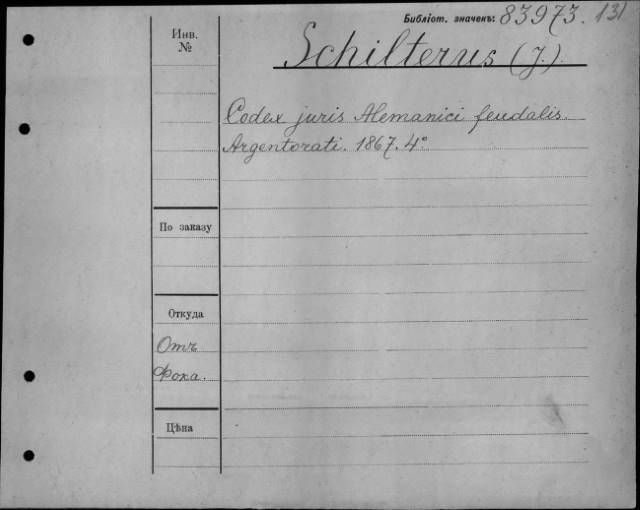 Библіот. значенъ: 83973. 131
Инв. №
Schilterus (J.).
Codex juris Alemanici feudalis.
Argentorati. 1867. 4°
По заказу
Откуда
Отъ
Фока.
Цѣна